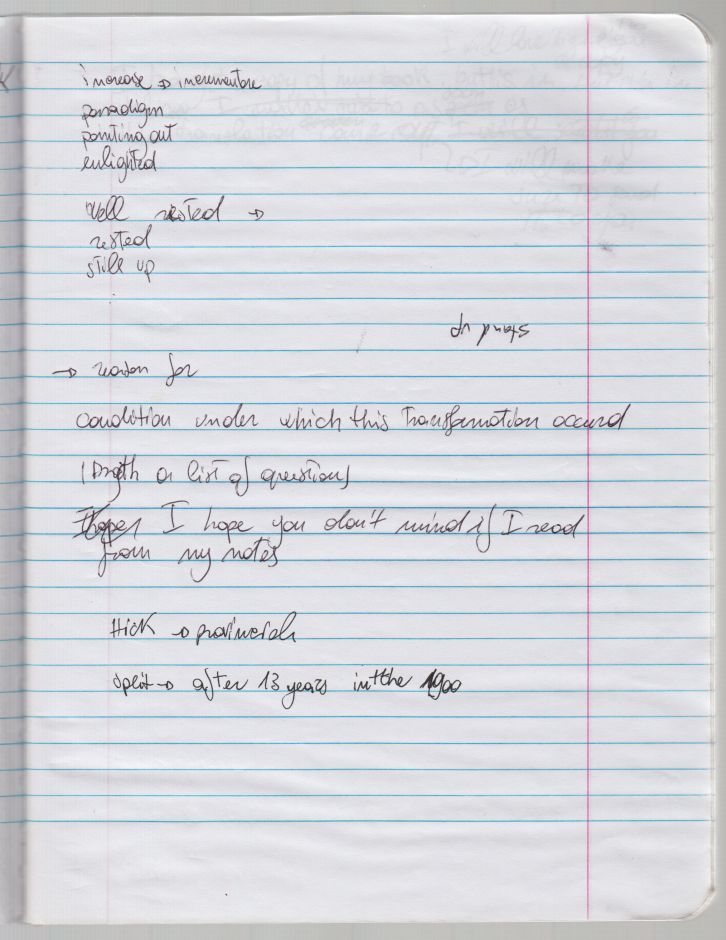 increase → incrementare
paradigm
pointing out
enlighted
Well rested →
rested
still up
stand up
→ reason for
condition under which this transformation occurd
a list of questions
I hope you don't mind if I read
from my notes
Hick → provinciale
split → after 13 years in the 1900